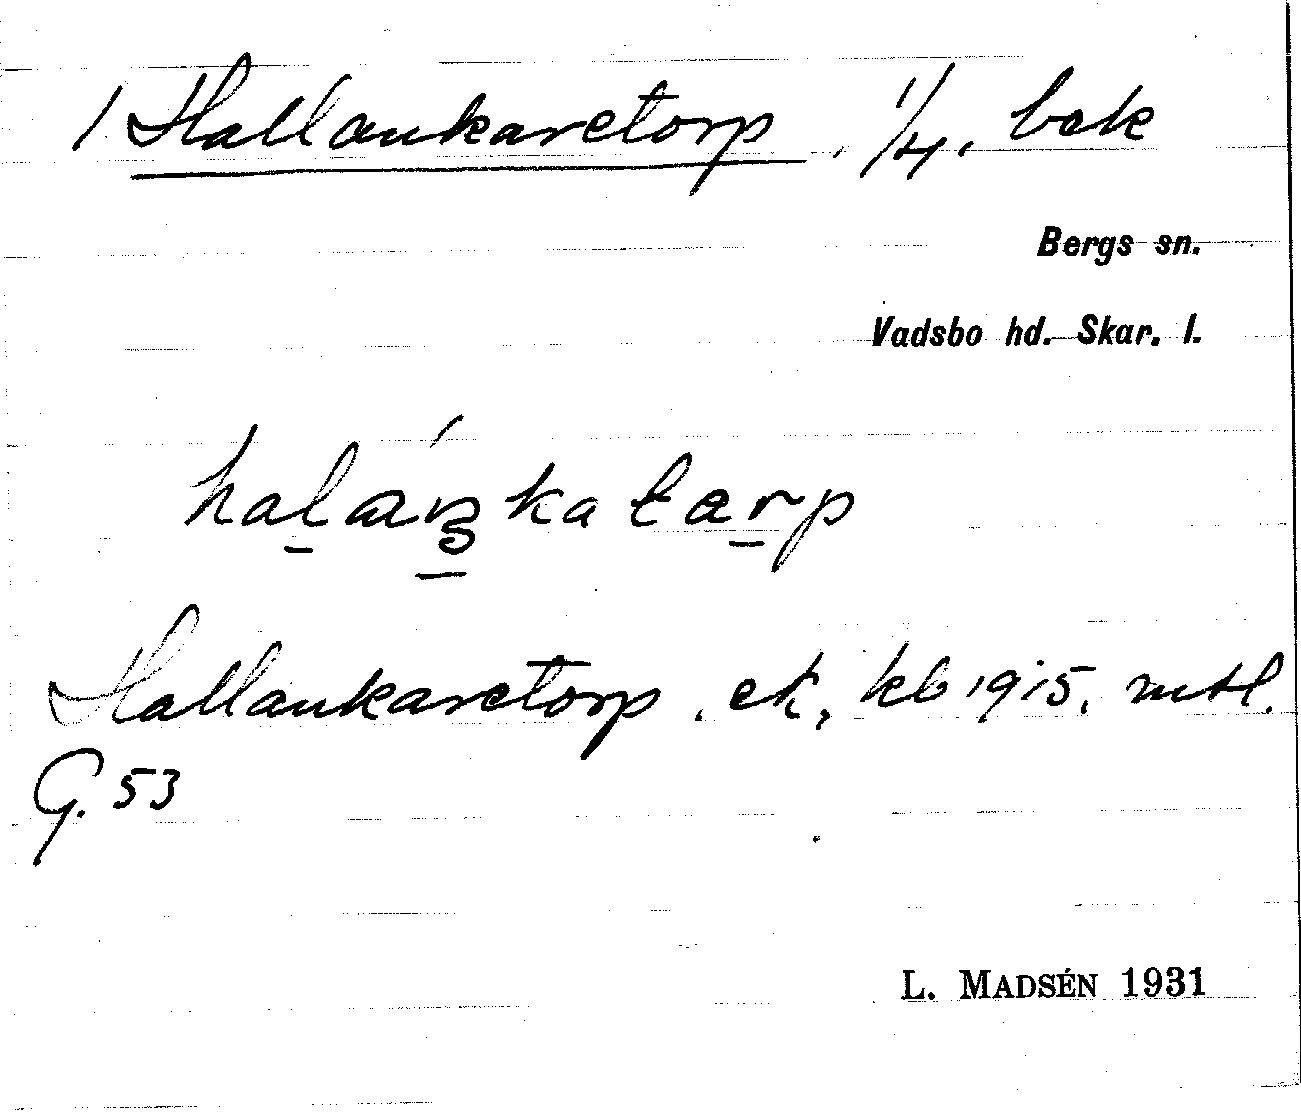 1 Hallankaretorp, 1/4, bek
Bergs sn.
Vadsbo hd. Skar. l.
Hallankaretorp, ek, kb 1915, mtl.
G. 53
L. MADSÉN 1931